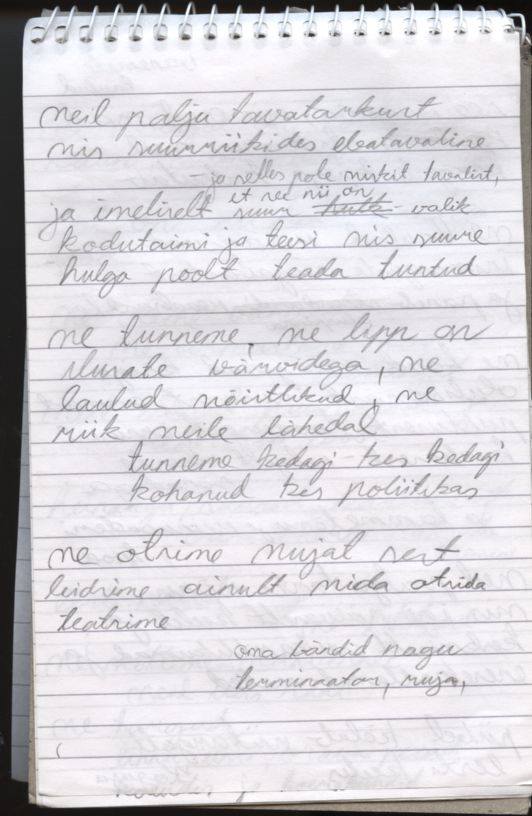 meil palju tavatarkust
mis suurriikides ebatavaline
- ja selles pole miskit tavalist,
et see nii on
ja imeliselt suur hulk valik
kodutaimi ja teesi mis suure
hulga poolt teada tuntud
me tunneme, me lipp on
ilusate värvidega, me
laulud mõistlikud, me
riik meile lähedal
tunneme kedagi kes kedagi
kohanud kes poliitikas
me otsime mujal sest
leidsime ainult mida otsida
teatsime
oma bändid nagu
terminaator, ruja,